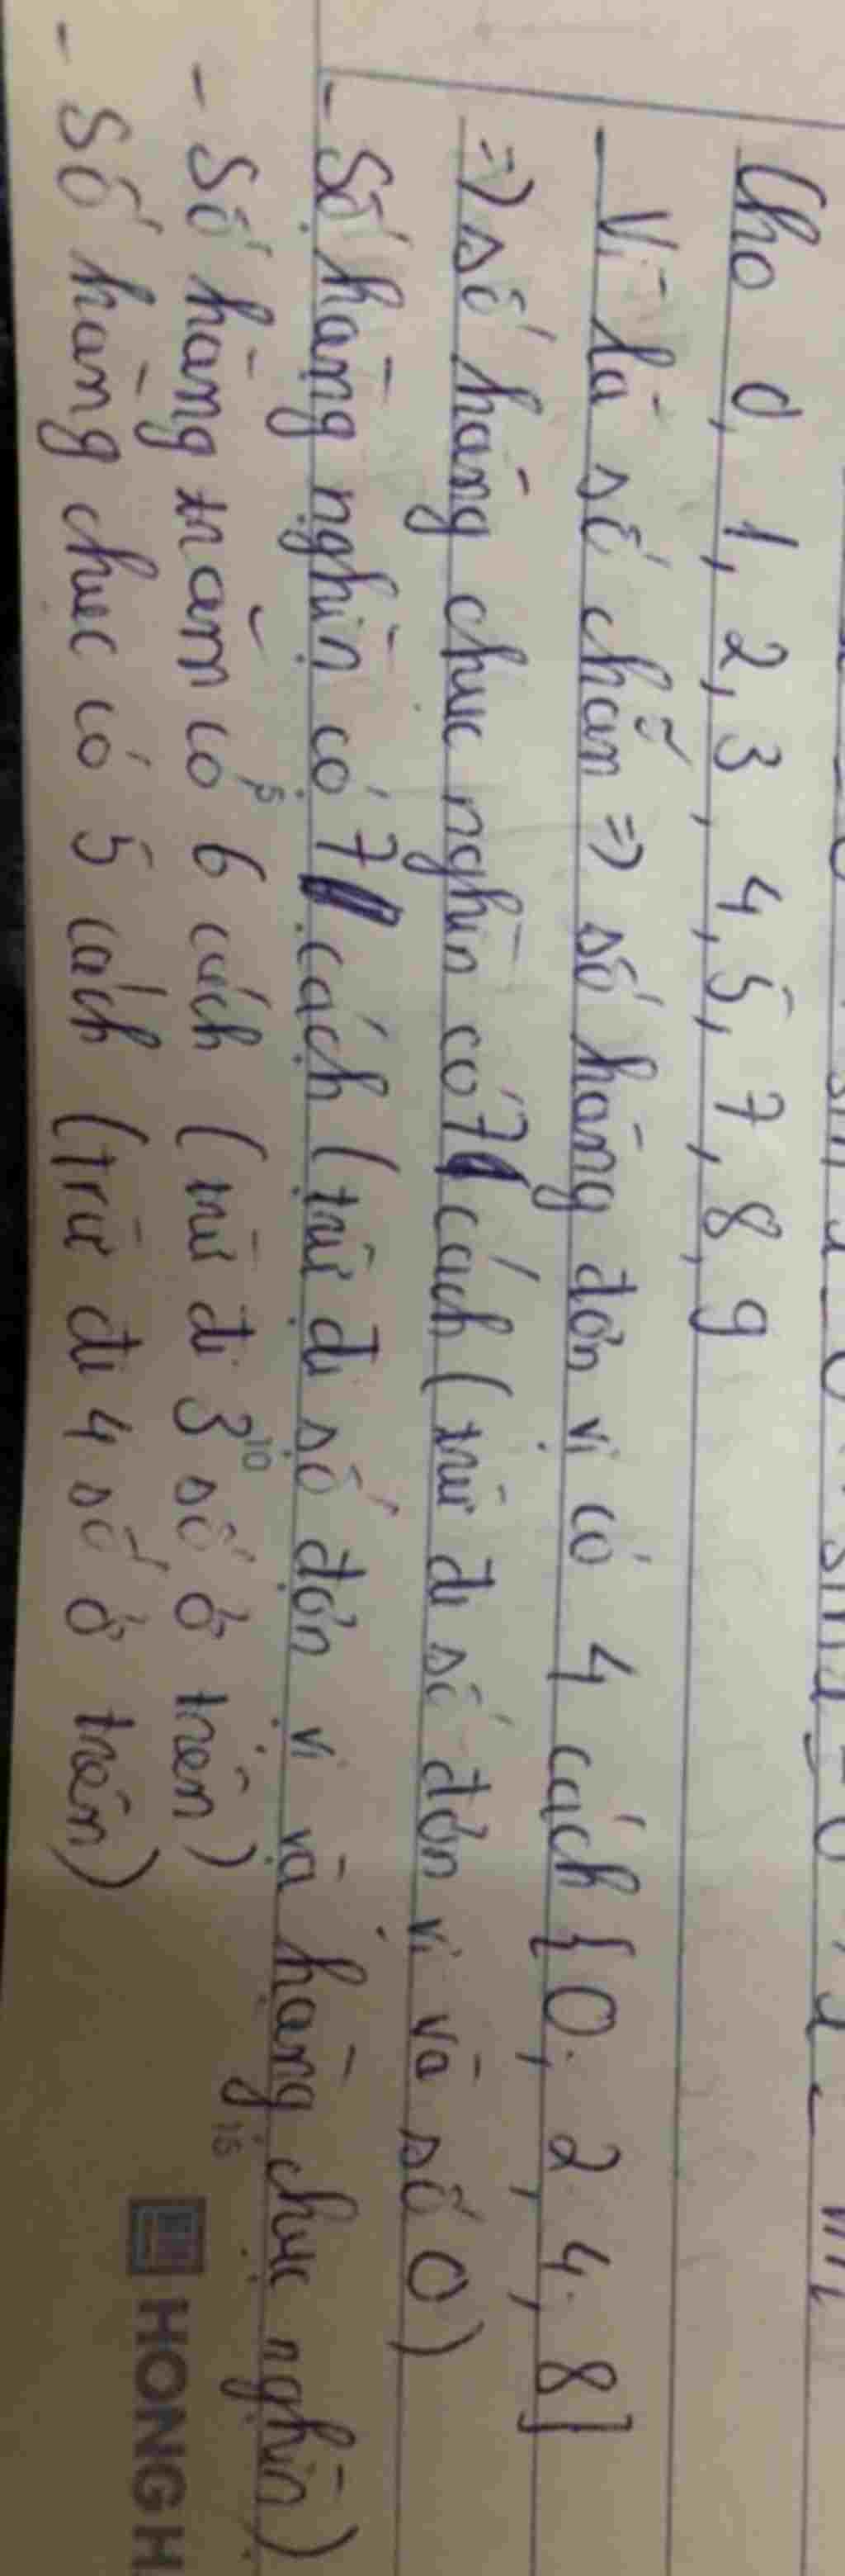 Cho 0, 1, 2, 3, 4, 5, 7, 8, 9
- Vì là số chẵn => số hàng đơn vị có 4 cách {0, 2, 4, 8}
=> số hàng chục nghìn có 7 cách (trừ đi số đơn vị và số 0)
- Số hàng nghìn có 7 cách (trừ đi số đơn vị và hàng chục nghìn)
- Số hàng trăm có 6 cách (trừ đi 3 số ở trên)
- Số hàng chục có 5 cách (trừ đi 4 số ở trên)
5 10 15
HONG H